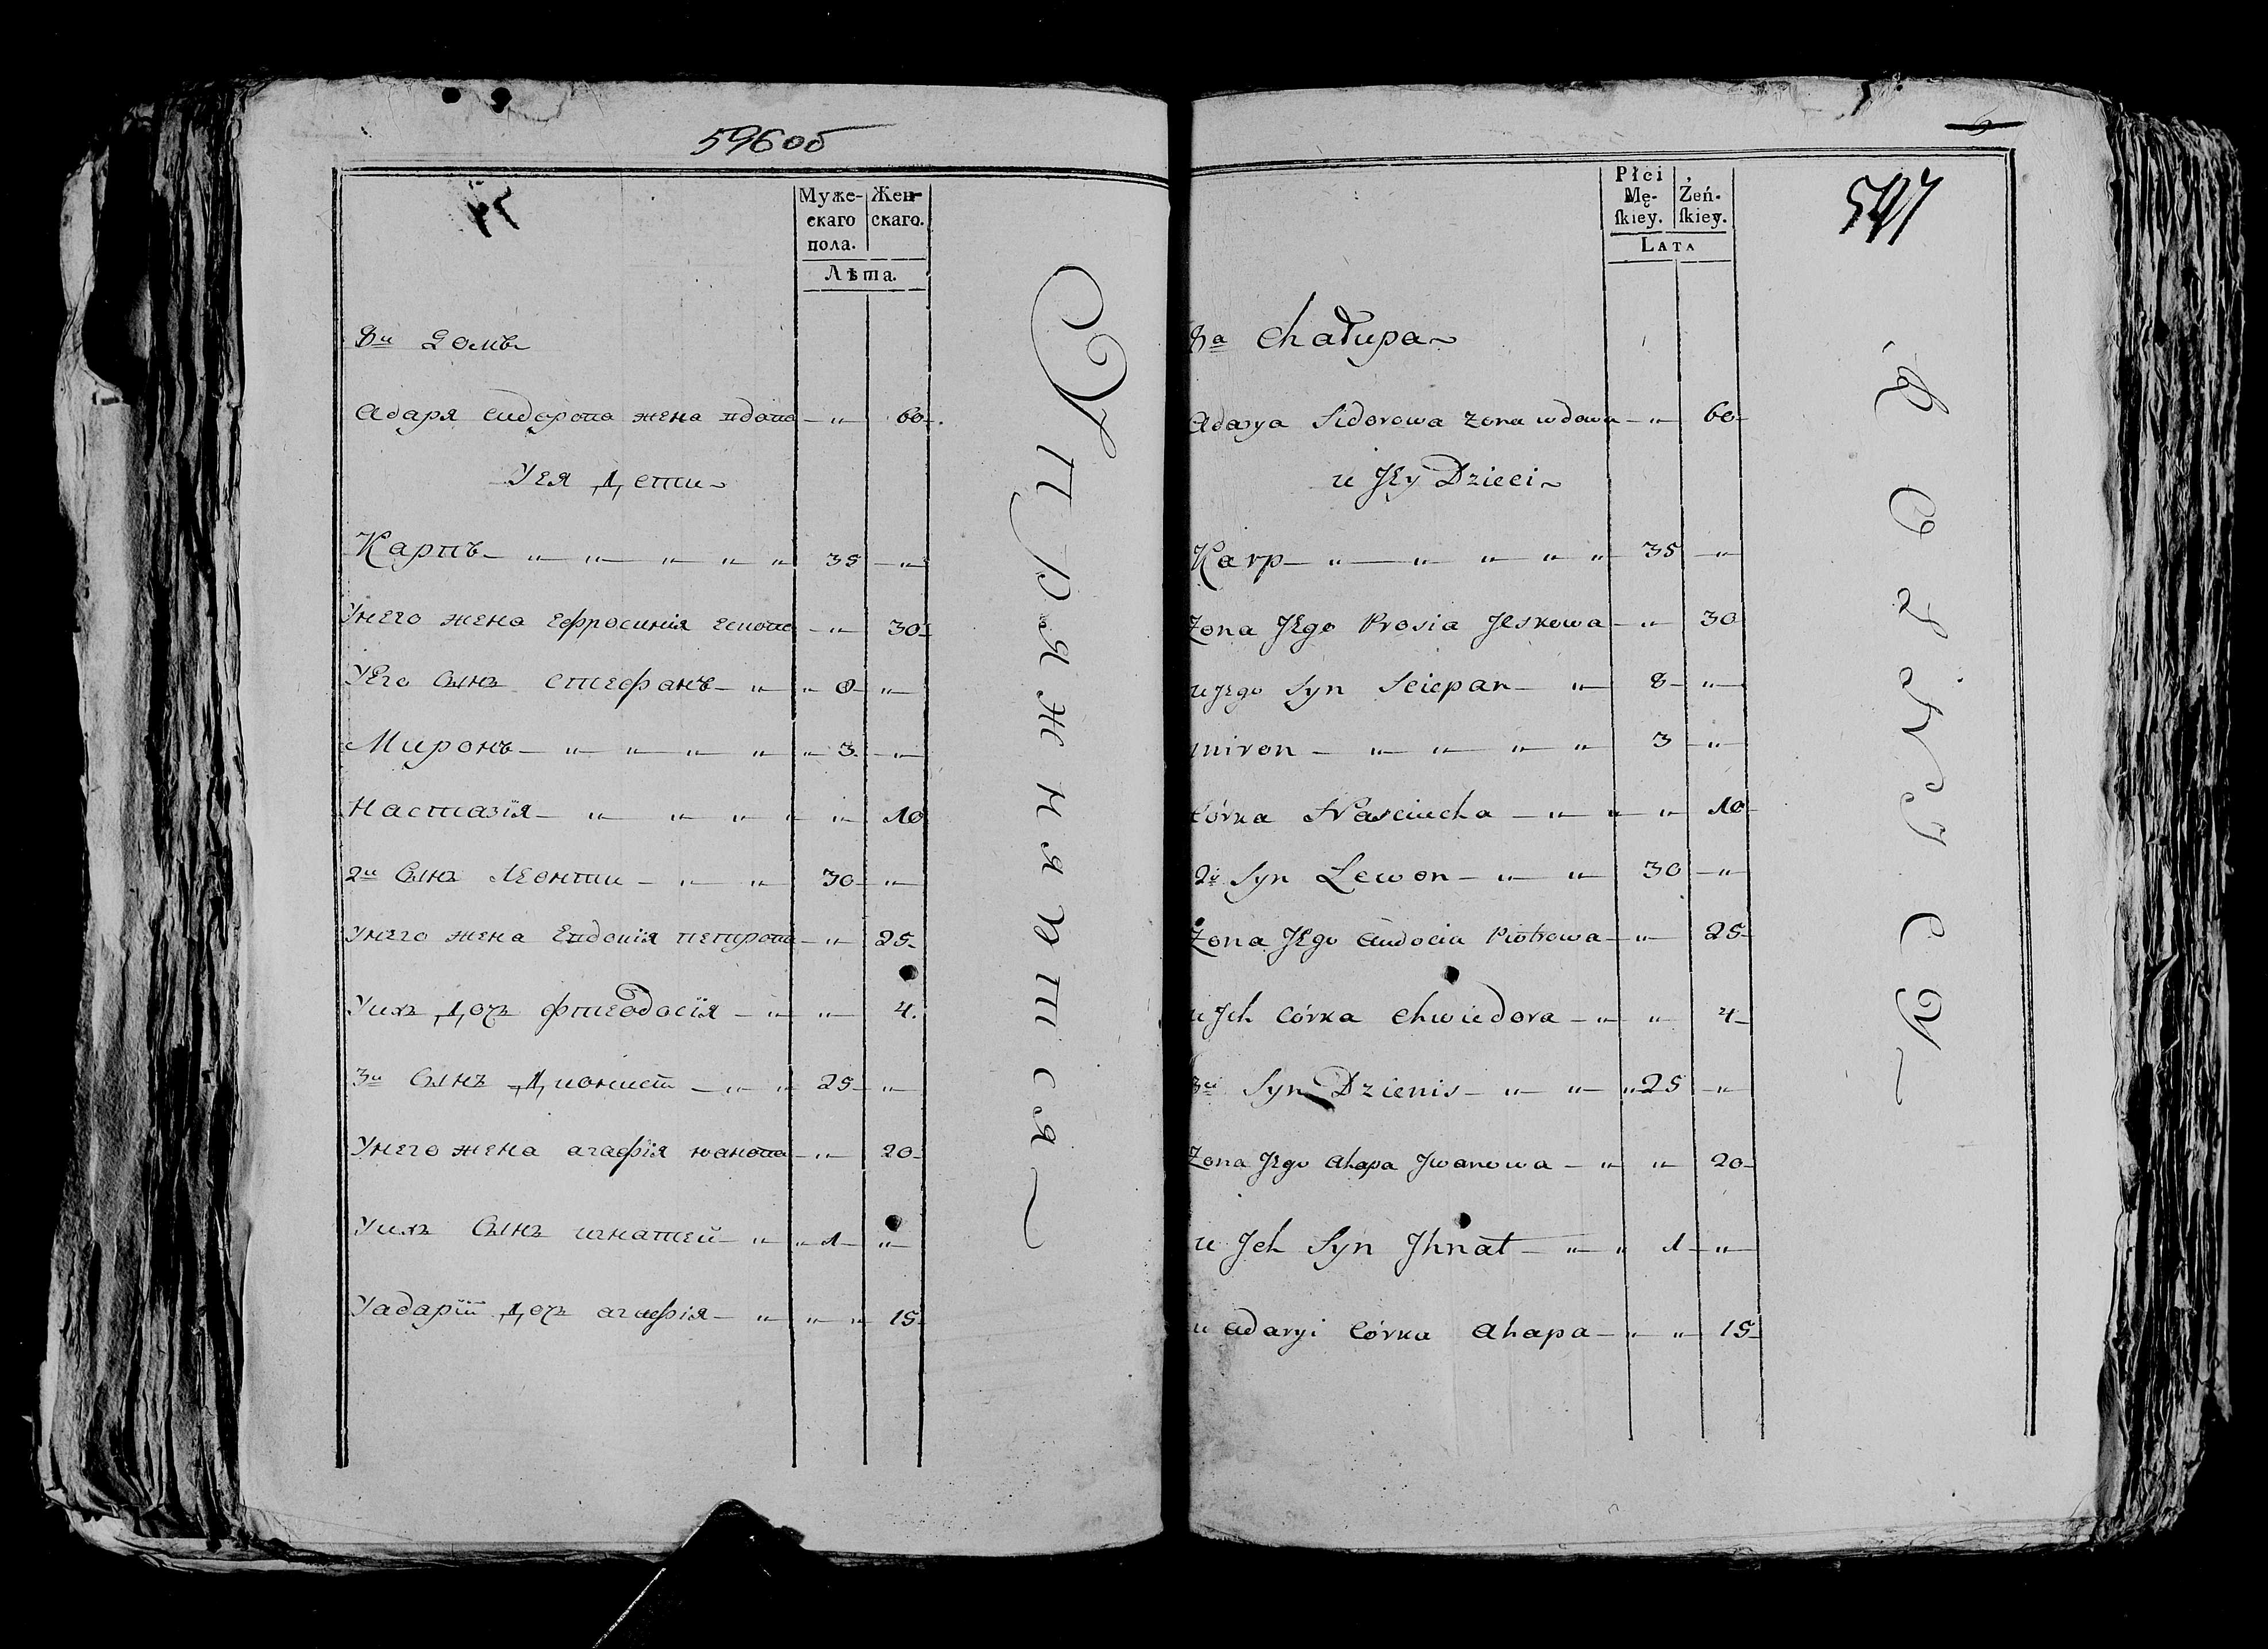 596об
Муже-
скаго
пола.
Жен-
скаго.
Лѣта.
8й Домъ
Адаря Сидорова жена вдова — „ 60
У ея Дети
Карпъ — „ „ „ „ „ 35 — „
У него жена Ефросинія Есиова — „ 30
У Его Сынъ Стефанъ — „ „ 8 — „
Миронъ — „ „ „ „ „ 3 — „
Настазія — „ „ „ „ „ 10
2й Сынъ Леонти — „ „ 30 — „
У него жена Евдокія петрова — „ 25
У ихъ Дочъ Фтеодосія — „ „ 4
3й Сынъ Дионист — „ „ 25 — „
У него жена агафія иванова — „ 20
У ихъ Сынъ игнатей — „ „ 1 — „
У адаріи Дочъ агафія — „ „ „ 15
Упряжниается
597
Płci
Mę-
ſkiey.
Żeń-
ſkiey.
LATA
8a Chałupa
Adarya Sidorowa Zona wdowa — „ 60
u Jey Dzieci
Karp — „ „ „ „ „ 35 — „
Zona Jego Prosia Jeskowa — „ 30
u Jego Syn Sciepan — „ 8 — „
miron — „ „ „ „ 3 — „
Córka Nasciucha — „ „ „ 10
2i Syn Lewon — „ „ 30 — „
Zona Jego Audocia Piotrowa — „ 25
u Jch Córka Chwiedora — „ „ 4
3i Syn Dzienis — „ „ „ 25 — „
Zona Jego Ahapa Jwanowa — „ „ 20
u Jch Syn Jhnat — „ „ 1 — „
u Adaryi Córka Ahapa — „ „ 15